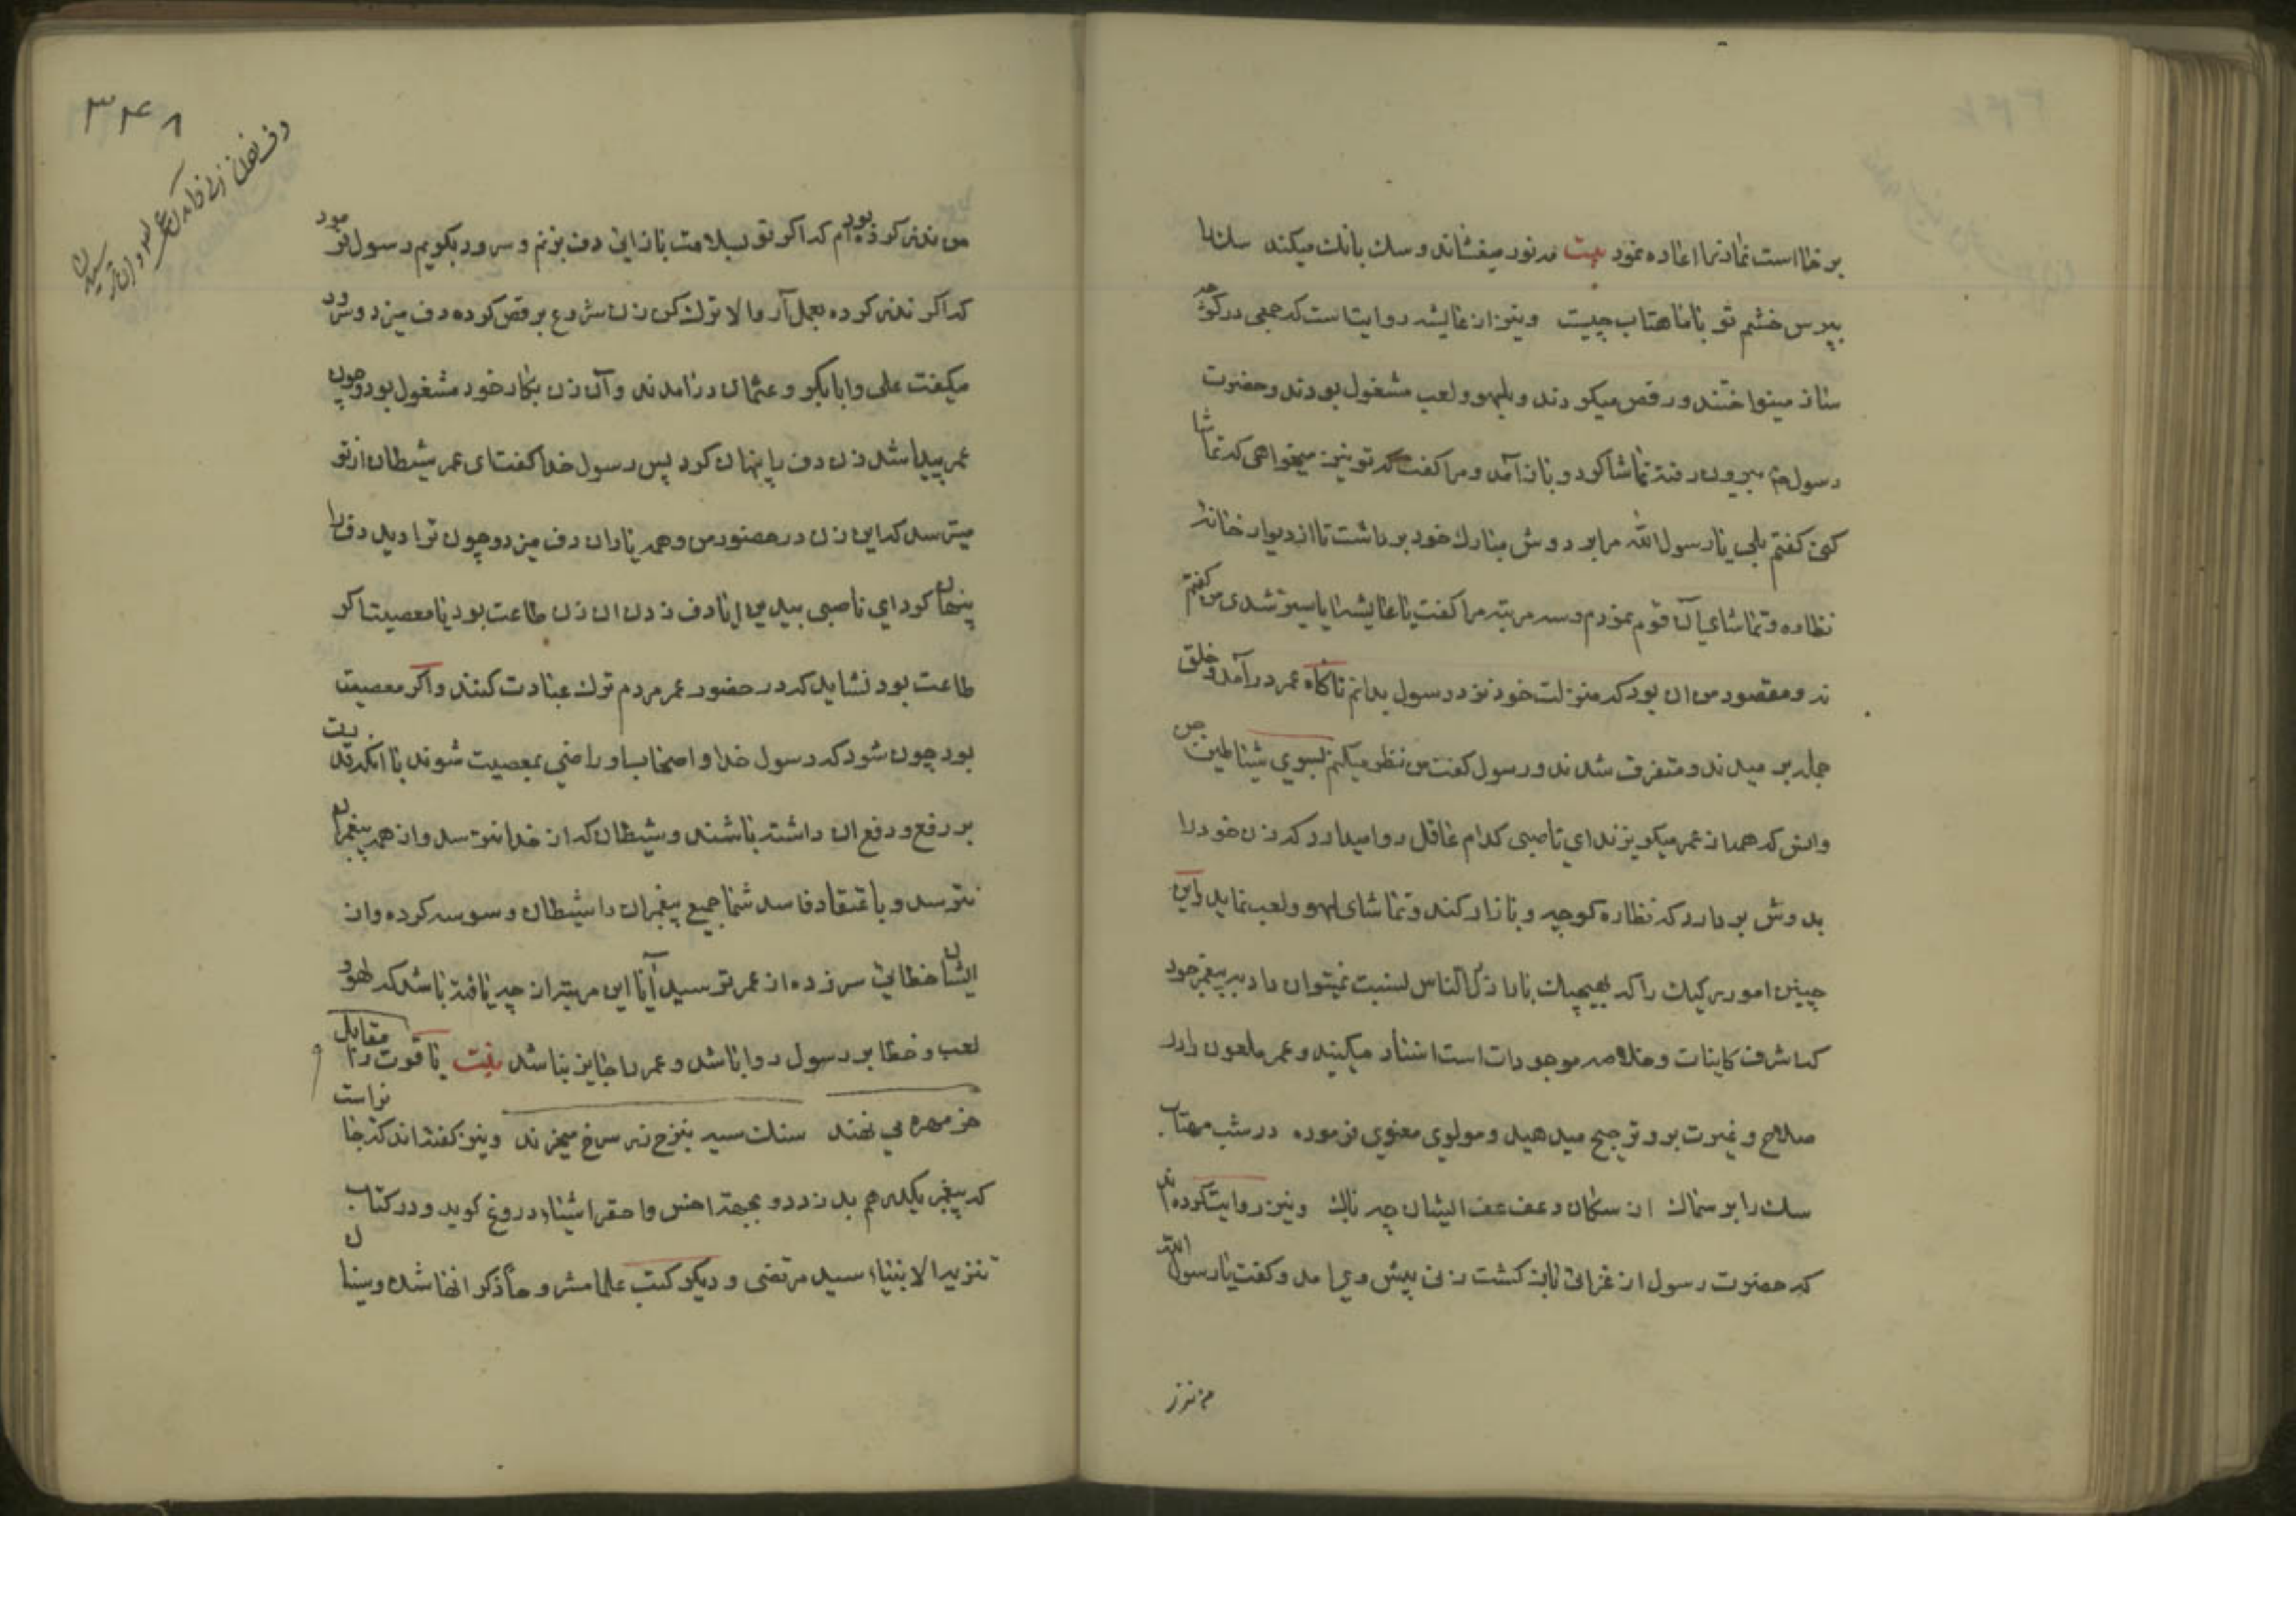 برخاست نماند نما اعاده نمود بیت مه نور میفشاند و سك بانك میکند سك را
بپرس خشم تو با ماهتاب چیست و نیز از عایشه روایت است که جمعی در کوچه
ساز مینواختند و رقص میکردند و بلهو و لعب مشغول بودند و حضرت
رسول بیرون رفته تماشا کرد و باز آمد و مرا کفت که تو نیز میخواهی که تماشا
کنی کفتم بلی یا رسول الله مرا بر دوش مبارك خود برداشت تا از دیوار خانه
نظاره و تماشای آن قوم نمودم و سه مرتبه مرا کفت یا عایشه ایا سیر شدی من کفتم
نه و مقصود من ان بود که منزلت خود نزد رسول بدانم ناکاه عمر درآمد و خلق
جمله برمیدند و متفرق شدند و رسول کفت من نظر میکنم بسوی شیاطین جن
وانس که همه از عمر میکریزند ای ناصبی کدام عاقل روا میدارد که زن خود را
بدوش بردارد که نظاره کوچه و بازار کند و تماشای لهو و لعب نماید و این
چنین امور رکیك را که بهیچیك باراذل الناس نسبت نمیتوان داد به پیغمبر خود
که اشرف کاینات و خلاصه موجودات است اسناد میکنید و عمر ملعون را در
صلاح و غیرت بر او ترجیح میدهید و مولوی معنوی فرموده در شب مهتاب
سك را بر سماك از سکان و عف عف ایشان چه باك و نیز روایت کرده اند
که حضرت رسول از غزائی باز کشت زنی پیش وی آمد و کفت یا رسول الله
من نذر
۳۴۸
دف زدن زنی و آمدن عمر و ترسیدن
من نذر کرده بودم که اکر تو بسلامت باز ائی دف بزنم و سرود بکویم رسول فرمود
که اکر نذر کرده بعمل آر والا ترك کن زن شروع برقص کرده دف میزد و سرود
میکفت علی و ابابکر و عثمان درآمدند و آن زن بکار خود مشغول بود و چون
عمر پیدا شد زن دف را پنهان کرد پس رسول خدا کفت ای عمر شیطان از تو
میترسد که این زن در حضور من و همه یاران دف میزد و چون ترا دید دف را
پنهان کرد ای ناصبی ببین ایا دف زدن ان زن طاعت بود یا معصیت اکر
طاعت بود نشاید که در حضور عمر مردم ترك عبادت کنند و اکر معصیت
بود چون شود که رسول خدا و اصحاب او راضی بمعصیت شوند با انکه قدرت
بر رفع و دفع ان داشته باشند و شیطان که از خدا نترسد و از همه پیغمبران
نترسد و باعتقاد فاسد شما جمیع پیغمبران را شیطان وسوسه کرده و از
ایشان خطائی سر زده از عمر ترسید آیا این مرتبه از چه یافته باشد که لهو و
لعب و خطا بر رسول روا باشد و عمر را جایز نباشد بیت یاقوت را مقابل
خر مهره می نهند سنك سیه بنرخ زر سرخ میخرند و نیز کفته اند که جایز است
که پیغمبر یکدرهم بدزدد و بجهة اخس و احقر اشیاء دروغ کوید و در کتاب
تنزیه الانبیاء سید مرتضی و دیکر کتب علما مشروحاً ذکر انها شده و بسیار